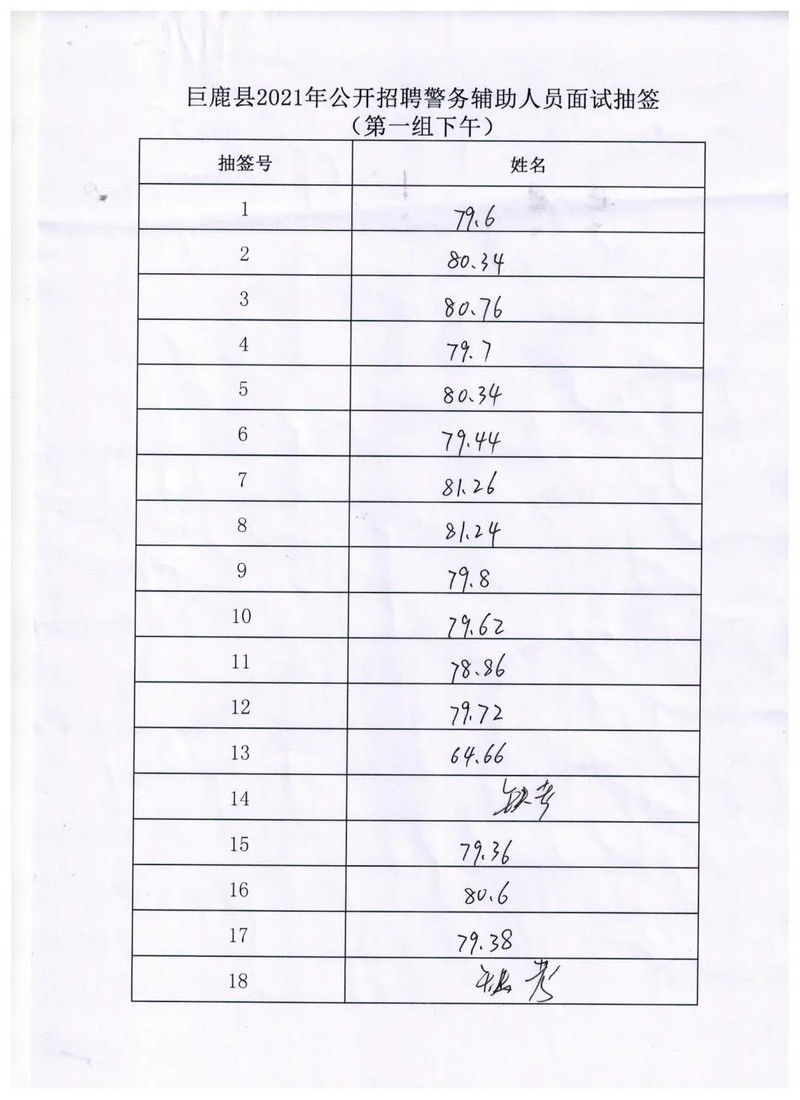 巨鹿县2021年公开招聘警务辅助人员面试抽签
（第一组下午）
抽签号 姓名
1 79.6
2 80.34
3 80.76
4 79.7
5 80.34
6 79.44
7 81.26
8 81.24
9 79.8
10 79.62
11 78.86
12 79.72
13 64.66
14 缺考
15 79.36
16 80.6
17 79.38
18 缺考